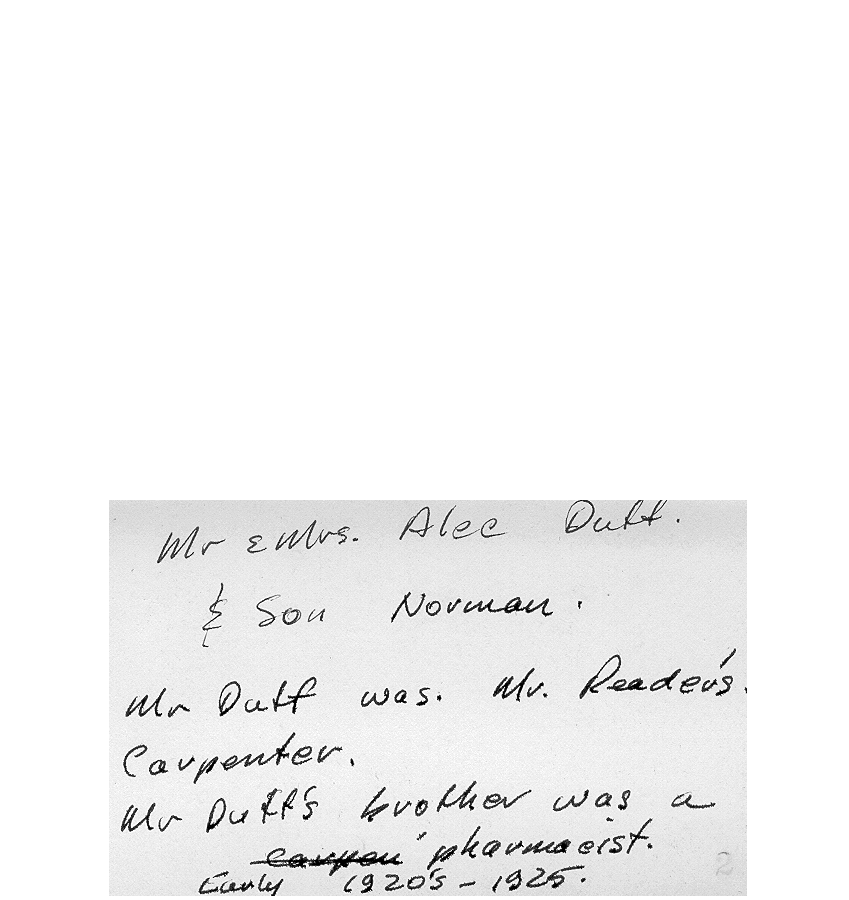 Mr & Mrs. Alec Duff.
& Son Norman.
Mr Duff was. Mr. Reader's.
Carpenter.
Mr Duff's brother was a
carpen pharmacist.
Early 1920's - 1925.
2